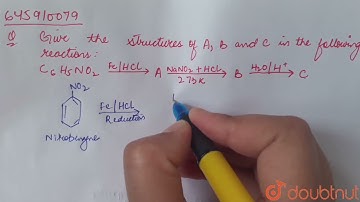 645910079
Q Give the structures of A, B and C in the following
reactions:
C6H5NO2 Fe/HCl → A NaNO2 + HCl 273K → B H2O/H+ → C
NO2
Fe/HCl
Reduction
Nitrobenzene
doubtnut